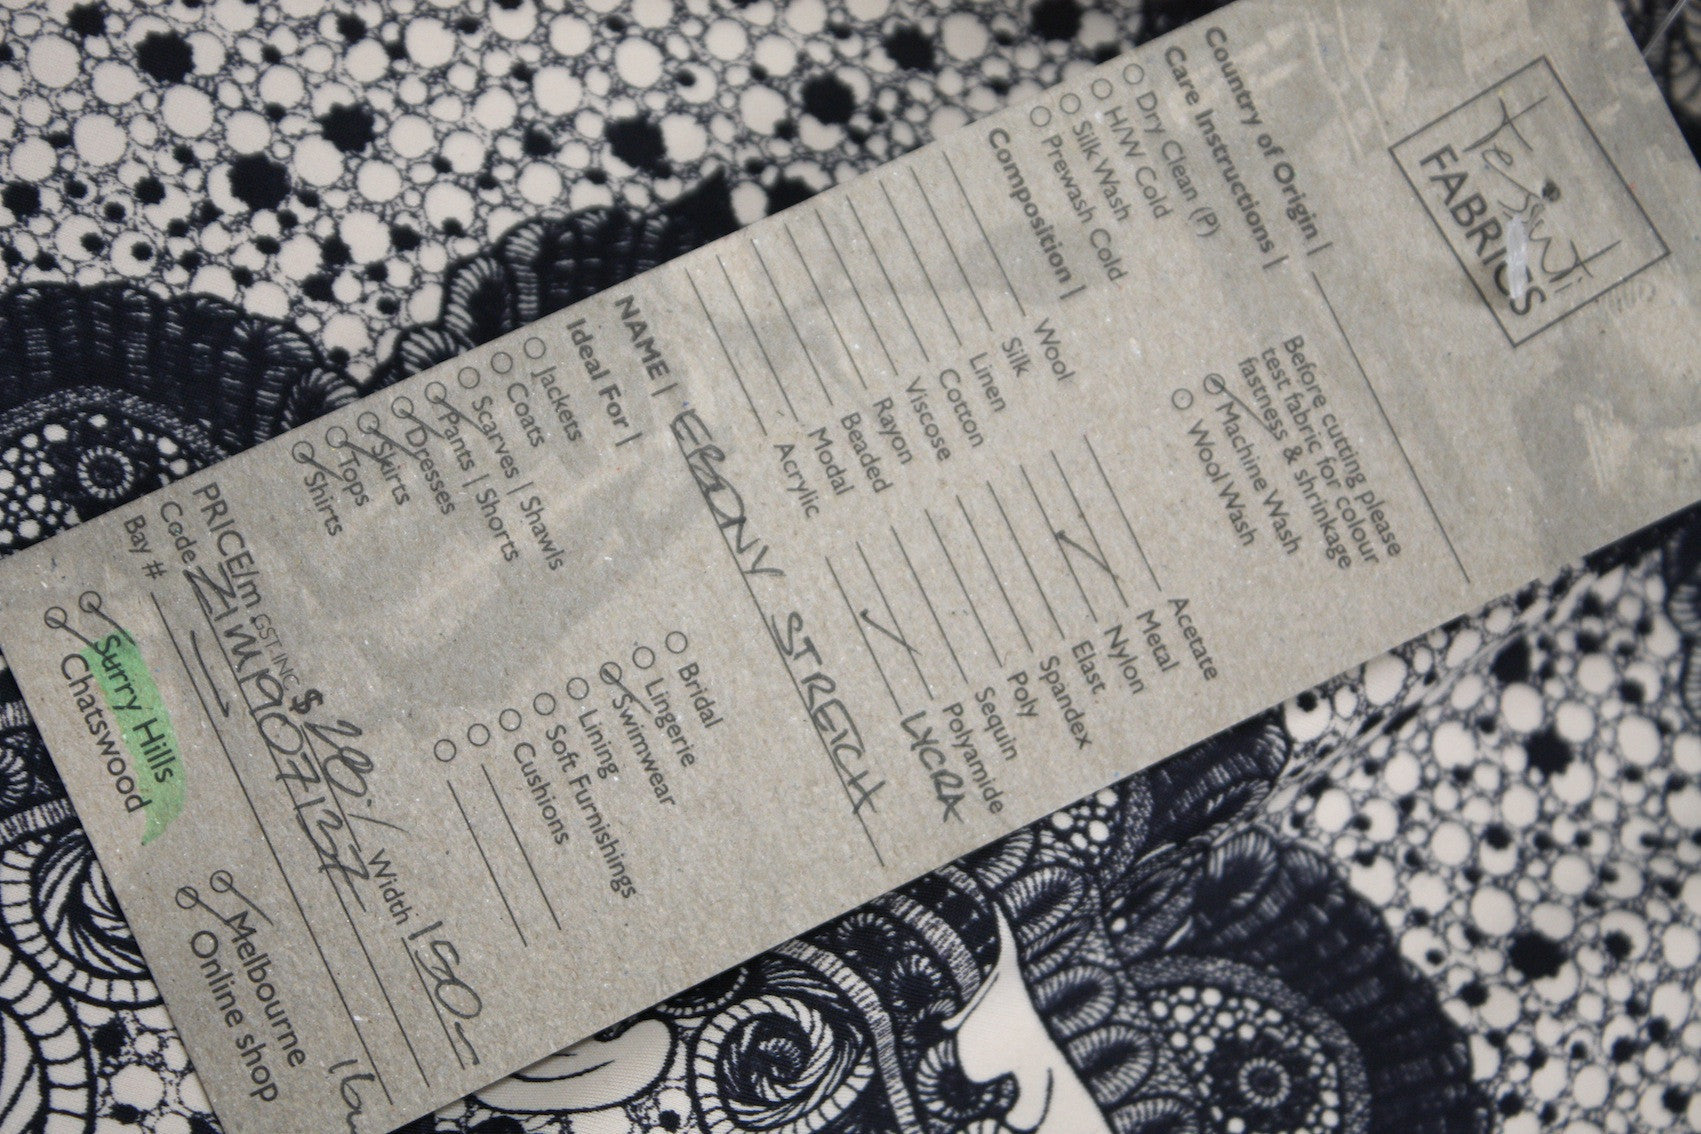 Tessuti
FABRICS
Country of Origin |
Care Instructions |
Dry Clean (P)
H/W Cold
Silk Wash
Prewash Cold
Before cutting please
test fabric for colour
fastness & shrinkage
Machine Wash
Wool Wash
Composition |
Wool
Silk
Linen
Cotton
Viscose
Rayon
Beaded
Modal
Acrylic
Acetate
Metal
Nylon
Elast.
Spandex
Poly
Sequin
Polyamide
LYCRA
NAME | EBONY STRETCH
Ideal For |
Jackets
Coats
Scarves | Shawls
Pants | Shorts
Desses
Skirts
Tops
Shirts
Bridal
Lingerie
Swimwear
Lining
Soft Furnishings
Cushions
PRICE/m GST INC $ 20.- Width 150-
Code ZIM1907137
Bay #
Surry Hills
Chatswood
Melbourne
Online shop